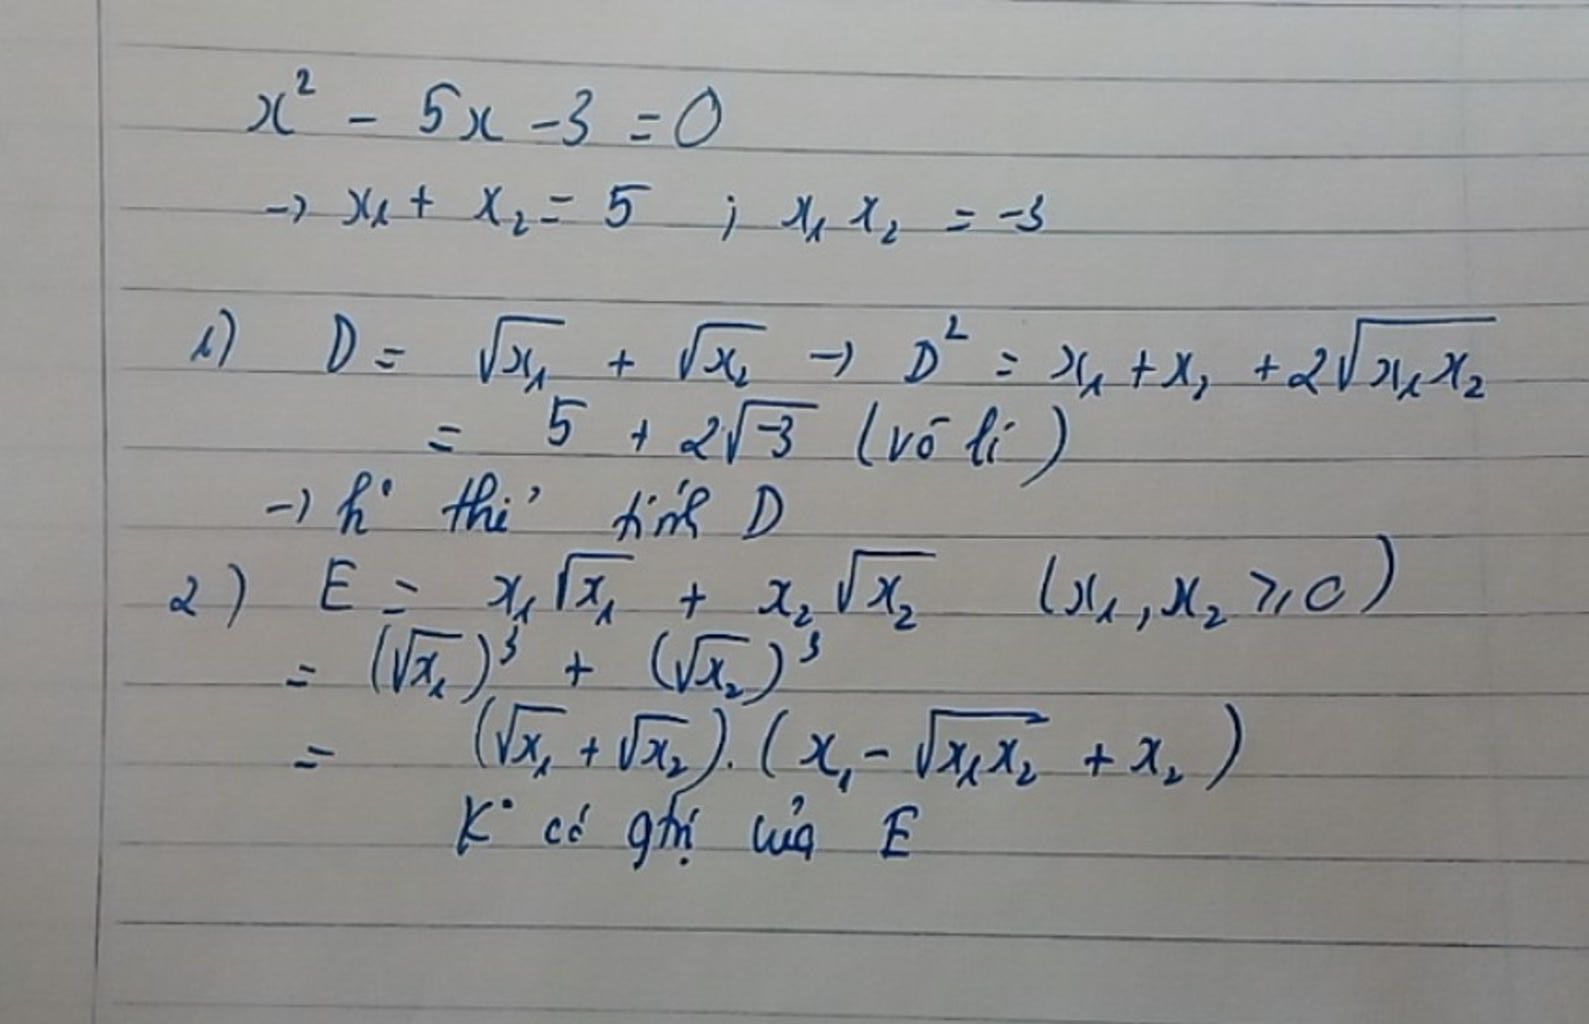 x² - 5x - 3 = 0
→ x₁ + x₂ = 5 ; x₁ x₂ = -3
1) D = √x₁ + √x₂ → D² = x₁ + x₂ + 2√(x₁x₂)
= 5 + 2√-3 (vô lí)
→ k° thể tính D
2) E = x₁√x₁ + x₂√x₂ (x₁, x₂ ≥ 0)
= (√x₁)³ + (√x₂)³
= (√x₁ + √x₂).(x₁ - √(x₁x₂) + x₂)
K° có gtrị của E